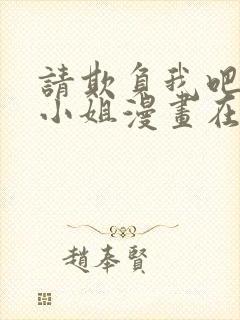 請欺負我吧
小姐漫畫在
趙奉賢